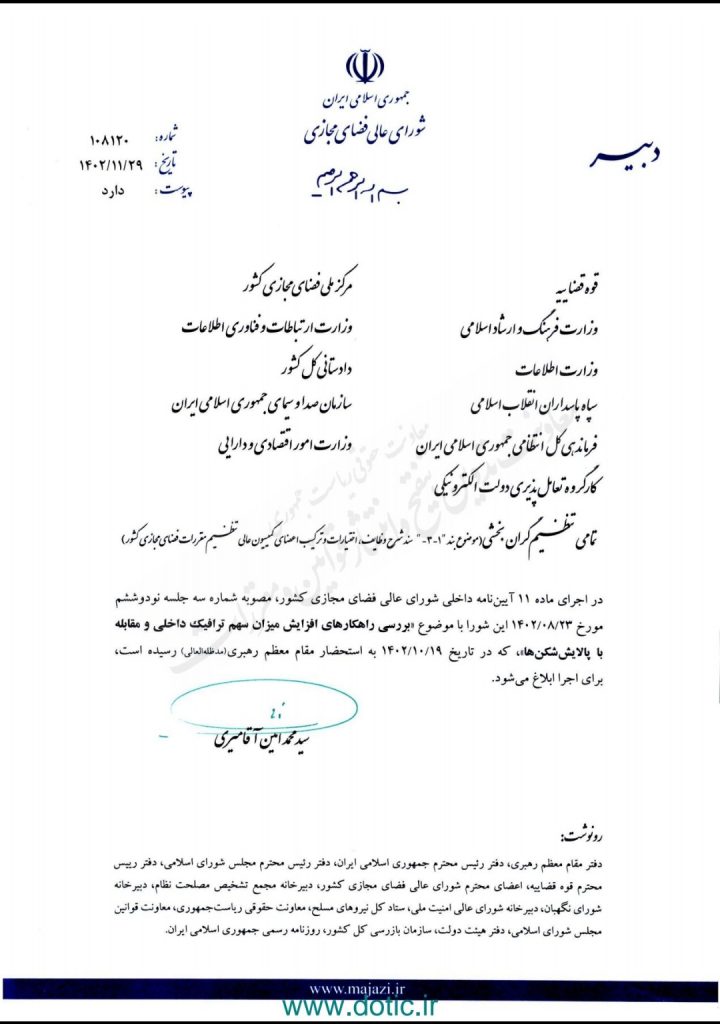 جمهوری اسلامی ایران
شورای عالی فضای مجازی
دبیر
شماره: ۱۰۸۱۲۰
تاریخ: ۱۴۰۲/۱۱/۲۹
پیوست: دارد
بسم الله الرحمن الرحیم
قوه قضاییه
مرکز ملی فضای مجازی کشور
وزارت فرهنگ و ارشاد اسلامی
وزارت ارتباطات و فناوری اطلاعات
وزارت اطلاعات
دادستانی کل کشور
سپاه پاسداران انقلاب اسلامی
سازمان صدا و سیمای جمهوری اسلامی ایران
فرماندهی کل انتظامی جمهوری اسلامی ایران
وزارت امور اقتصادی و دارایی
کارگروه تعامل پذیری دولت الکترونیکی
تمامی تنظیم گران بخشی (موضوع بند "۱-۳-" سند شرح وظایف، اختیارات و ترکیب اعضای کمیسیون عالی تنظیم مقررات فضای مجازی کشور)
در اجرای ماده ۱۱ آیین‌نامه داخلی شورای عالی فضای مجازی کشور، مصوبه شماره سه جلسه نودوششم
مورخ ۱۴۰۲/۰۸/۲۳ این شورا با موضوع «بررسی راهکارهای افزایش میزان سهم ترافیک داخلی و مقابله
با پالایش‌شکن‌ها»، که در تاریخ ۱۴۰۲/۱۰/۱۹ به استحضار مقام معظم رهبری(مدظله‌العالی) رسیده است،
برای اجرا ابلاغ می‌شود.
سید محمد امین آقامیری
رونوشت:
دفتر مقام معظم رهبری، دفتر رئیس محترم جمهوری اسلامی ایران، دفتر رئیس محترم مجلس شورای اسلامی، دفتر رییس
محترم قوه قضاییه، اعضای محترم شورای عالی فضای مجازی کشور، دبیرخانه مجمع تشخیص مصلحت نظام، دبیرخانه
شورای نگهبان، دبیرخانه شورای عالی امنیت ملی، ستاد کل نیروهای مسلح، معاونت حقوقی ریاست‌جمهوری، معاونت قوانین
مجلس شورای اسلامی، دفتر هیئت دولت، سازمان بازرسی کل کشور، روزنامه رسمی جمهوری اسلامی ایران.
www.majazi.ir
www.dotic.ir